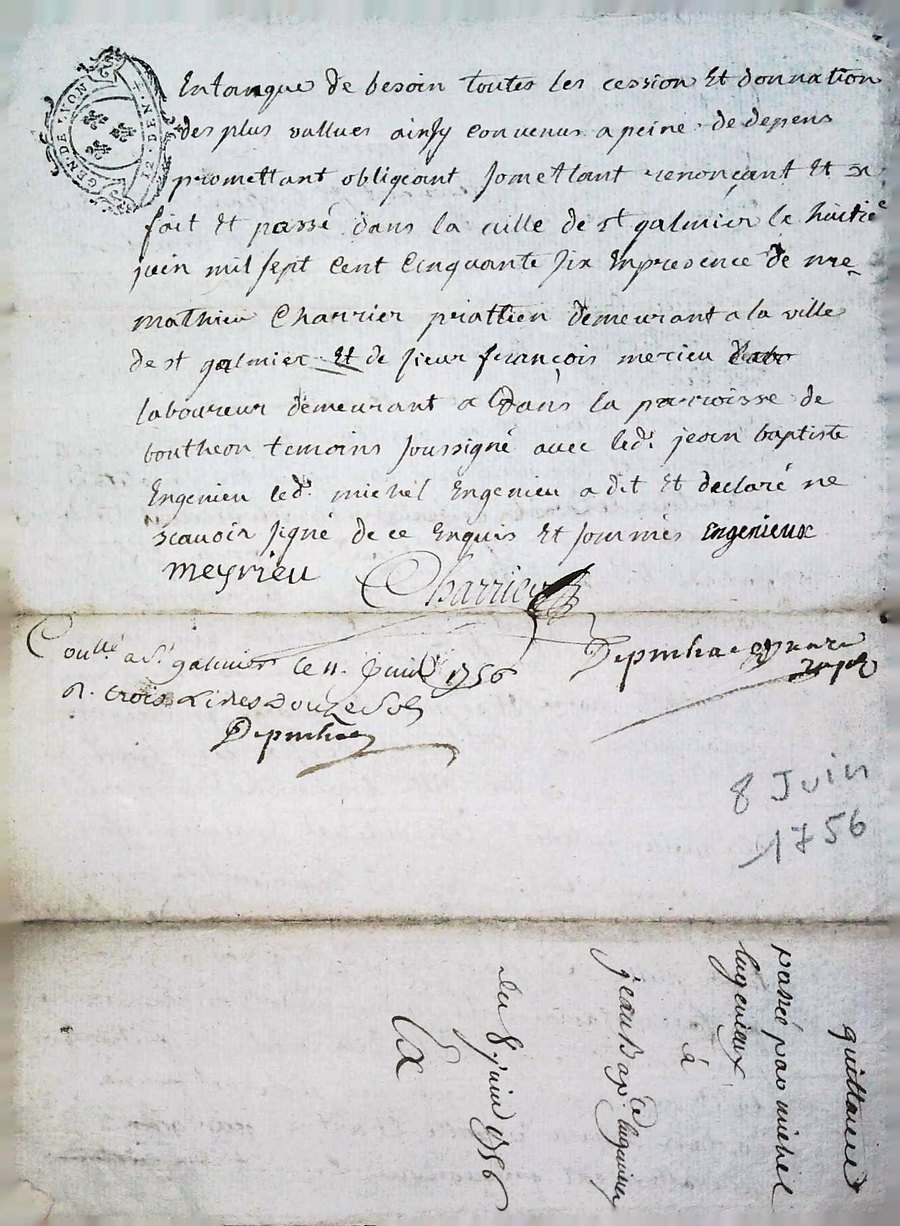 GEN·DE LYON
Entanque de besoin toutes les cession Et donnation
des plus vallues ainsy convenus a peine de depens
promettant obligeant somettant renonçant Et
fait Et passé dans la ville de st galmier le huitie
juin mil sept Cent Cinquante six Enpresence de me
mathieu Charrier pratticien demeurant a la ville
de st galmier Et de sieur françois merieu
laboureur demeurant a dans la parroisse de
boutheon temoins soussigné avec led. jean baptiste
Engenieu led. michel Engenieu a dit Et declaré ne
scavoir signé de ce Enquis Et sommés Engenieux
meyrieu Charrier
Coullé a St galmier le 11 Juin 1756
R. trois Livres Douze Sols
8 Juin
1756
quittance
passé par michel
Engenieux
à
jean Bapte Engenieux
du 8 juin 1756